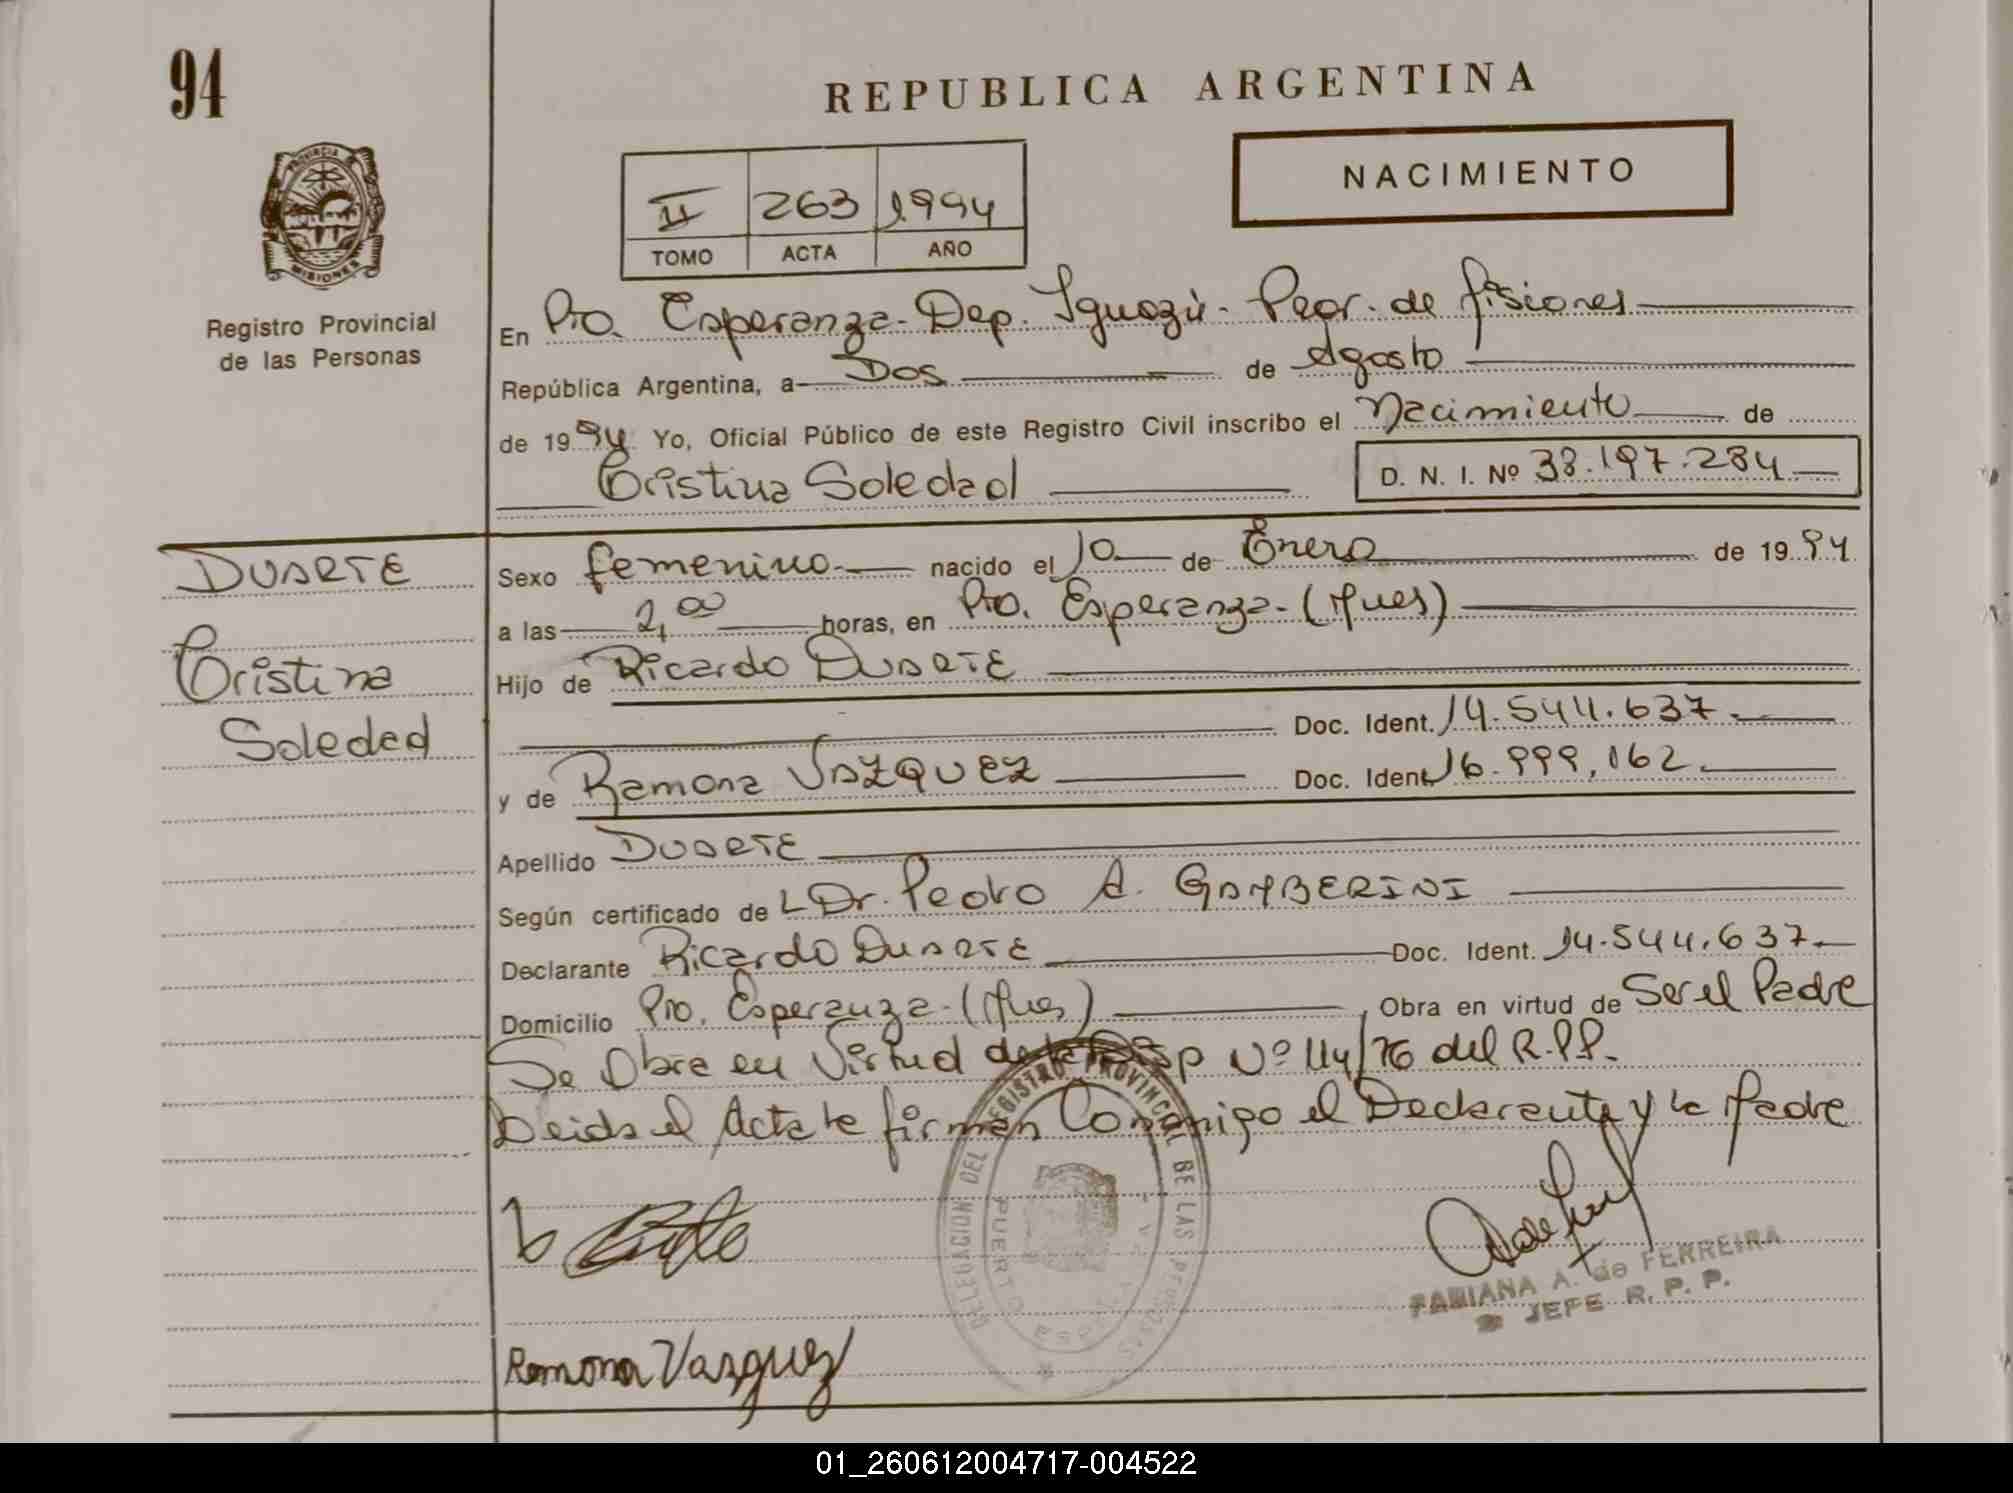 94
REPUBLICA ARGENTINA
NACIMIENTO
II 263 1994
TOMO ACTA AÑO
PROVINCIA
MISIONES
Registro Provincial
de las Personas
En Pto. Esperanza - Dep. Iguazú - Pcia. de Misiones
República Argentina, a Dos de Agosto
de 1994 Yo, Oficial Público de este Registro Civil inscribo el Nacimiento de
Cristina Soledad
D. N. I. Nº 38.197.284
DUARTE
Cristina
Soledad
Sexo femenino nacido el 10 de Enero de 1994
a las 2,00 horas, en Pto. Esperanza - (Mnes)
Hijo de Ricardo DUARTE
Doc. Ident. 14.544.637.
y de Ramona VAZQUEZ Doc. Ident. 16.999.162.
Apellido DUARTE
Según certificado de L Dr. Pedro A. GAMBERINI
Declarante Ricardo DUARTE Doc. Ident. 14.544.637.
Domicilio Pto. Esperanza - (Mnes) Obra en virtud de Ser el Padre
Se Obra en Virtud de la Disp Nº 114/76 del R.P.P.
Leida el Acta la firman Conmigo el Declarante y la Madre
DELEGACION DEL REGISTRO PROVINCIAL DE LAS PERSONAS
PUERTO
Ramona Vazquez
FABIANA A. de FERREIRA
JEFE R. P. P.
01_260612004717-004522